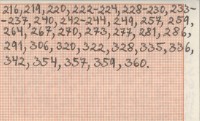 216,219,220,222-224,228-230,233-
-237,240,242-244,249,257,259,
264,267,270,273,277,281,286,
291,306,320,322,328,335,336,
342,354,357,359,360.